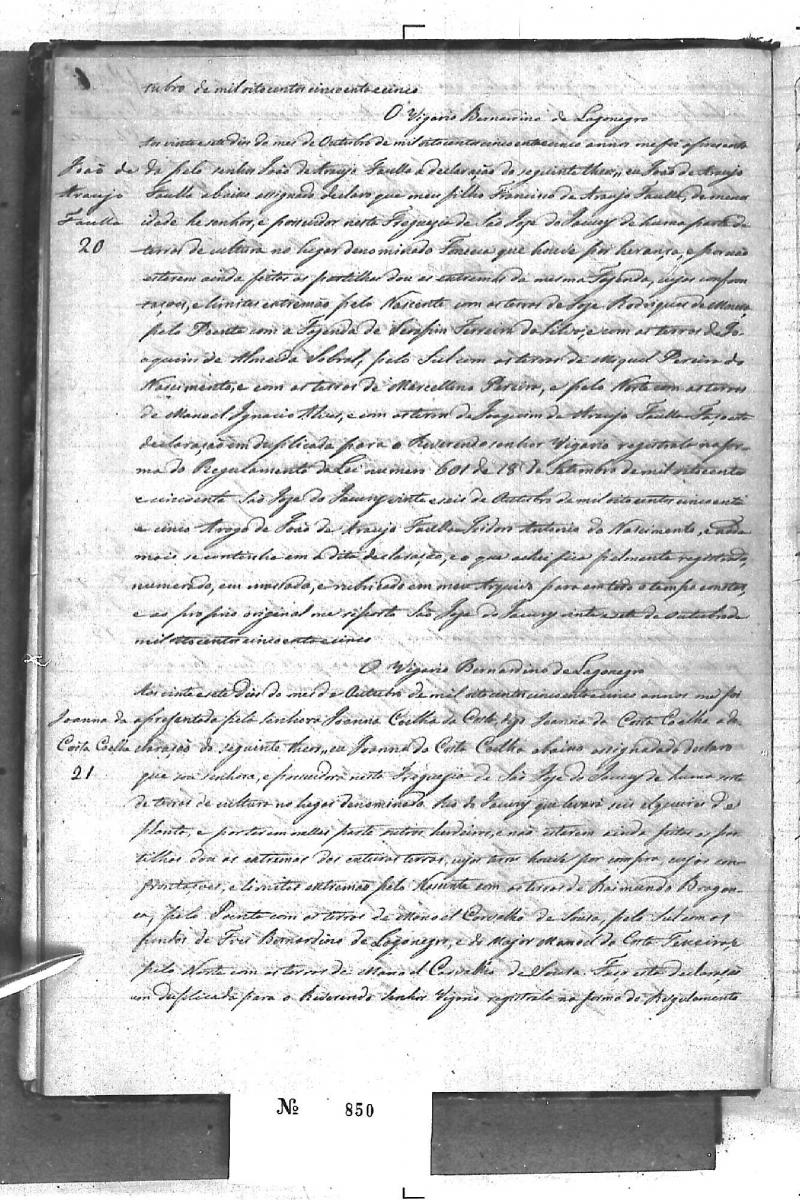 tubro de mil oito centos cincoenta e cinco
O Vigario Bernardino de Lagonegro
Aos vinte e sete dias do mes de Outubro de mil oito centos cincoenta e cinco annos me foi apresenta
João de Araujo Faulla 20
da pelo senhor João de Araujo Faulla a declaração do seguinte theor, eu João de Araujo
Faulla abaixo assignado declaro que meu filho Francisco de Araujo Faulla, de menor
idade he senhor, e possuidor nesta Freguezia de São Joze do Jacury de huma parte de
terras de cultura no lugar denominado que houve por herança, e por não
estarem ainda feitas as partilhas dou os extremos da mesma Fazenda, cujas confron
taçoes, e limites extremão pelo Nascente com as terras de Joze Rodrigues de
pelo Poente com a Fazenda de Serafim Ferreira da Silva, e com as terras de Jo-
aquim de Almeida Sobral, pelo Sul com as terras de Miguel Pereira do
Nascimento, e com as terras de Marcellino Pereira, e pelo Norte com as terras
de Manoel Ignacio Alves, e com as terras de Joaquim de Araujo Faulla. Faço esta
declaração em duplicada para o Reverendo senhor Vigario registrala na for-
ma do Regulamento da Lei numero 601 de 18 de Setembro de mil oito centos
e cincoenta São Joze do Jacury vinte e seis de Outubro de mil oito centos cincoenta
e cinco Arogo de João de Araujo Faulla Isidoro Antonio do Nascimento, e nada
mais se continha em a dita declaração, e o que aqui fica fielmente registrado,
numerado, em massado, e rubricado em meu Arquivo para em todo o tempo constar,
e ao proprio original me reporto São Joze do Jacury vinte e sete de Outubro de
mil oito centos cincoenta e cinco
O Vigario Bernardino de Lagonegro
Aos vinte e sete dias do mes de Outubro de mil oito centos cincoenta e cinco annos me foi
Joanna da Costa Coelha 21
apresentada pela senhora Joanna Coelha da Costa, digo Joanna da Costa Coelha a de
claração do seguinte theor, eu Joanna da Costa Coelha abaixo assignada declaro
que sou senhora, e possuidora nesta Freguezia de São Joze do Jacury de huma sorte
de terras de cultura no lugar denominado Rio do Jacury que levará seis alqueires de
planta, e por terem nelles parte outros herdeiros, e não estarem ainda feitas as par
tilhas dou os extremos das terras, cujas terras houve por compra, cujas con
frontaçoes, e limites extremão pelo Nascente com as terras de Raimundo Bragan-
ça, pelo Poente com as terras de Manoel Carvalho de Sousa, pelo Sul com os
fundos de Frei Bernardino de Lagonegro, e do Major Manoel da Costa Teixeira, e
pelo Norte com as terras de Manoel Carvalho de Sousa. Faço esta declaração
em duplicada para o Reverendo senhor Vigario registrala na forma do Regulamento
Nº 850